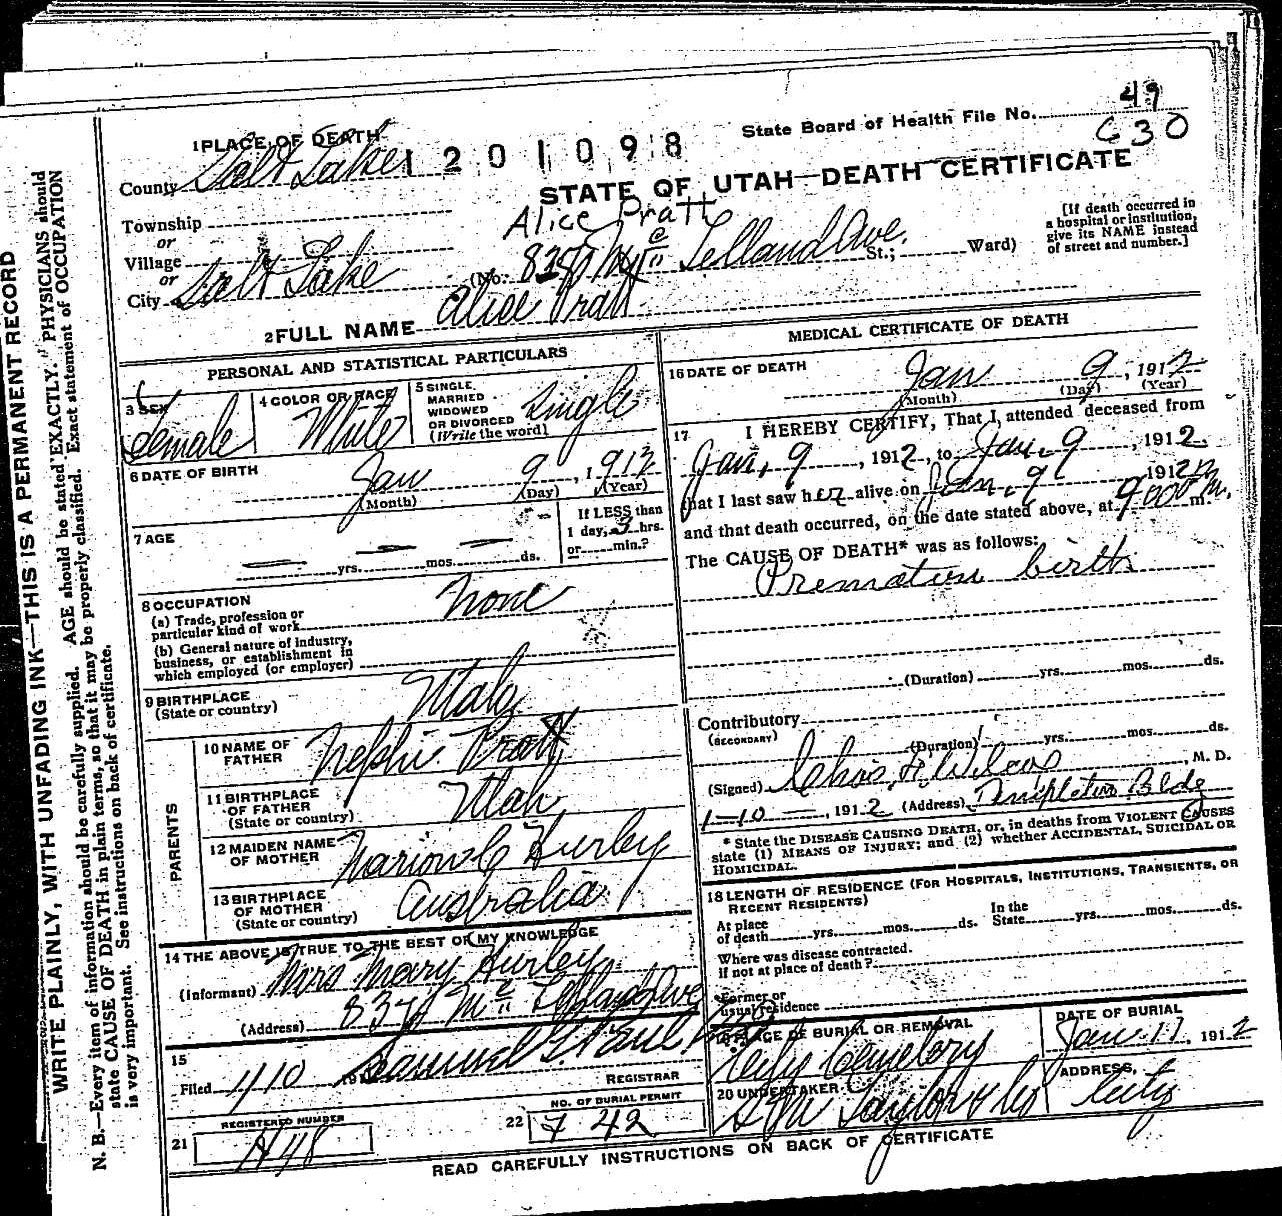 State Board of Health File No. 49
630
1 PLACE OF DEATH
1201098
County Salt Lake
STATE OF UTAH—DEATH CERTIFICATE
Township
Alice Pratt
or
Village
[If death occurred in a hospital or institution, give its NAME instead of street and number.]
or
City Salt Lake (No. Lelland Ave. St.; Ward)
2 FULL NAME Alice Pratt
PERSONAL AND STATISTICAL PARTICULARS
3 SEX Female
4 COLOR OR RACE White
5 SINGLE, MARRIED, WIDOWED OR DIVORCED (Write the word) Single
6 DATE OF BIRTH Jan 9, 1912
(Month) (Day) (Year)
7 AGE — yrs. — mos. — ds.
If LESS than 1 day, 3 hrs. or min.?
8 OCCUPATION
(a) Trade, profession or particular kind of work None
(b) General nature of industry, business, or establishment in which employed (or employer)
9 BIRTHPLACE (State or country) Utah
PARENTS
10 NAME OF FATHER Nephi Pratt
11 BIRTHPLACE OF FATHER (State or country) Utah
12 MAIDEN NAME OF MOTHER Marion C Hurley
13 BIRTHPLACE OF MOTHER (State or country) Australia
14 THE ABOVE IS TRUE TO THE BEST OF MY KNOWLEDGE
(Informant) Mrs Mary Hurley
(Address) Lelland Ave
15
Filed 1/10 191 Samuel G. Paul
REGISTRAR
REGISTERED NUMBER
21
NO. OF BURIAL PERMIT
22 742
MEDICAL CERTIFICATE OF DEATH
16 DATE OF DEATH Jan 9, 1912
(Month) (Day) (Year)
17 I HEREBY CERTIFY, That I attended deceased from
Jan, 9, 1912, to Jan. 9, 1912,
that I last saw her alive on Jan. 9, 1912
and that death occurred, on the date stated above, at 9 00 P m.
The CAUSE OF DEATH* was as follows:
Premature birth
(Duration) yrs. mos. ds.
Contributory
(SECONDARY)
(Duration) yrs. mos. ds.
(Signed) Chas. F. Wilcox, M. D.
1-10-, 1912 (Address) Templeton Bldg
* State the DISEASE CAUSING DEATH, or, in deaths from VIOLENT CAUSES
state (1) MEANS OF INJURY; and (2) whether ACCIDENTAL, SUICIDAL OR
HOMICIDAL.
18 LENGTH OF RESIDENCE (FOR HOSPITALS, INSTITUTIONS, TRANSIENTS, OR
RECENT RESIDENTS)
At place of death yrs. mos. ds. In the State yrs. mos. ds.
Where was disease contracted, if not at place of death?
Former or usual residence
19 PLACE OF BURIAL OR REMOVAL City Cemetery
DATE OF BURIAL Jan. 11, 1912
20 UNDERTAKER S M Taylor & Co
ADDRESS, City
READ CAREFULLY INSTRUCTIONS ON BACK OF CERTIFICATE
WRITE PLAINLY, WITH UNFADING INK—THIS IS A PERMANENT RECORD
N. B.—Every item of information should be carefully supplied. AGE should be stated EXACTLY. PHYSICIANS should
state CAUSE OF DEATH in plain terms, so that it may be properly classified. Exact statement of OCCUPATION
is very important. See instructions on back of certificate.